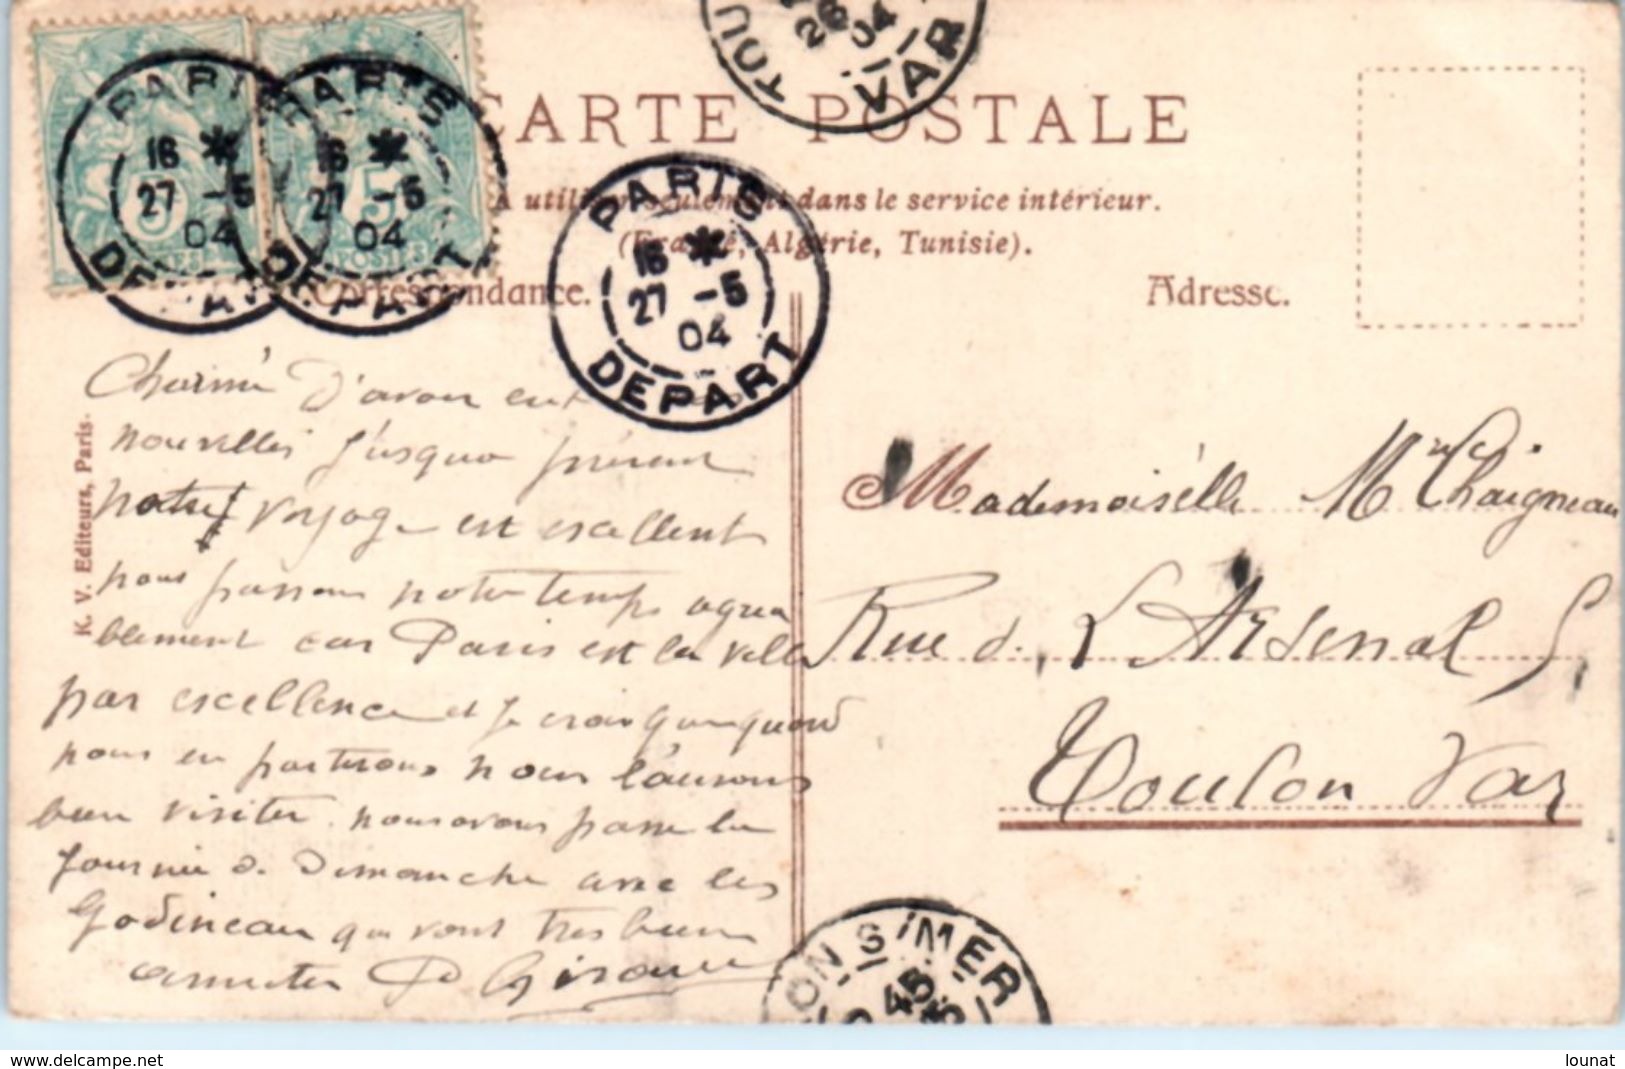 CARTE POSTALE
A utiliser seulement dans le service intérieur.
(France, Algérie, Tunisie).
Correspondance.
Adresse.
PARIS
16 *
27 -5
04
DEPART
PARIS
16 *
27 -5
04
DEPART
5
POSTES
PARIS
16 *
27 -5
04
DEPART
TOU
04
VAR
K. V. Editeurs, Paris.
Charmé d'avoir
nouvelles jusqua présent
notre voyage est excellent
nous passons notre temps agréa
blement car Paris est la ville
par excellence et je crois que quand
nous en partirons nous l'aurons
bien visiter. nous avons passé la
journée d. Dimanche avec les
Godineau qui vont tres bien
amities
Mademoisélle M Chaigneau
Rue d. L'Arsenal 5,
Toulon Var
ON S/MER
45
www.delcampe.net
lounat